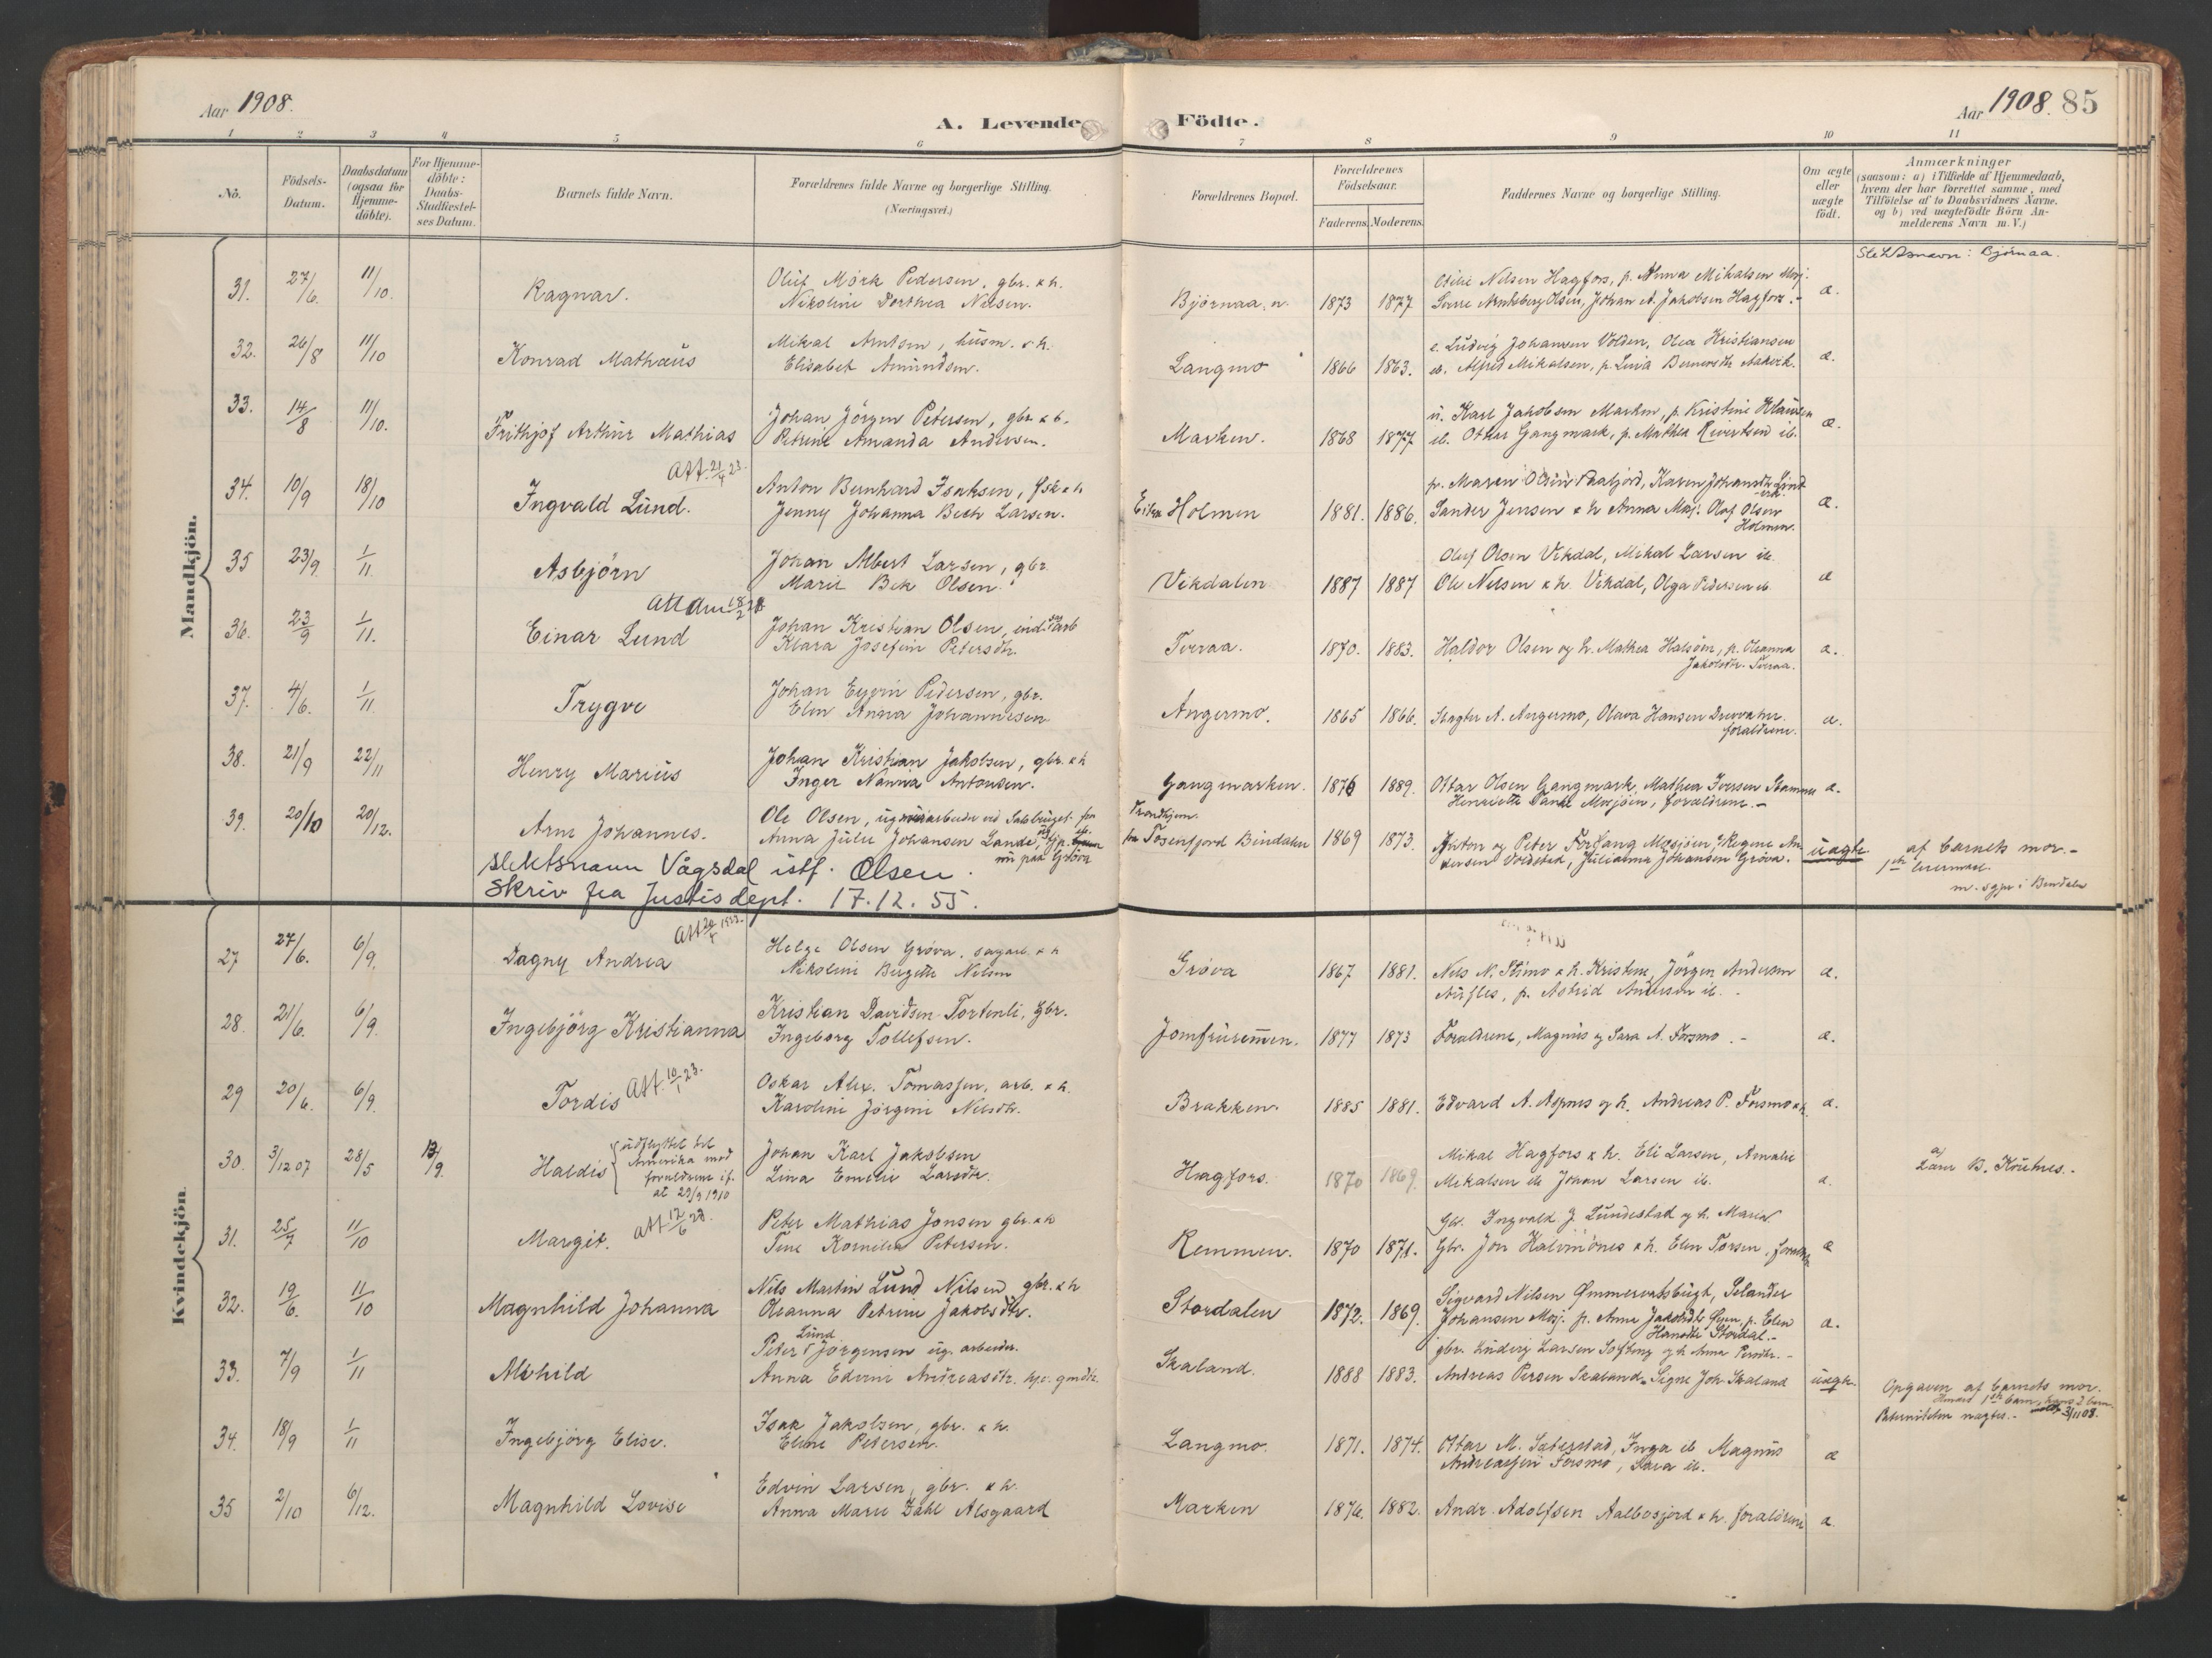 Aar 1908.
A. Levende Födte.
Aar 1908. 85
1 2 3 4 5 6 7 8 9 10 11
No.
Födsels-Datum.
Daabsdatum (ogsaa for Hjemme-döbte).
For Hjemme-döbte: Daabs-Stadfæstel-ses Datum.
Barnets fulde Navn.
Forældrenes fulde Navne og borgerlige Stilling.
(Næringsvei.)
Forældrenes Bopæl.
Forældrenes Födselsaar.
Faderens. Moderens.
Faddernes Navne og borgerlige Stilling.
Om ægte eller uægte födt.
Anmærkninger
(saasom: a) i Tilfælde af Hjemmedaab, hvem der har forrettet samme, med Tilföielse af to Daabsvidners Navne, og b) ved uægtefödte Börn Anmelderens Navn m. V.)
Mandkjön.
Slektsnavn: Bjørnaa.
31. 27/6. 11/10. Ragnar.
Oluf Mörk Pedersen, gbr. & h.
Nikoline Dorthea Nilsen.
Björnaa. n. 1873 1877
Nilsen Hagfors, p. Anna Mikalsen Mosj.
Johan A. Jakobsen Hagfors.-
æ.
32. 26/8 11/10 Konrad Mathæus
Mikal Arntsen, husm. & h.
Elisabet Amundsen.
Langmo 1866 1863.
e. Ludvig Johansen Volden, Olea Kristiansen
ib. Alfred Mikalsen, p.
æ.
33. 14/8 11/10. Frithjof Arthur Mathias
Johan Jörgen Petersen, gbr. & h.
Petrine Amanda Andersen.
Marken. 1868 1877
u. Karl Jakobsen Marken, p. Kristine Klausen
ib. Ottar Gangmark, p. Mathea Sivertsen ib.
æ.
Att. 21/4 23.
34. 10/9 18/10 Ingvald Lund.
Anton Bernhard Isaksen, fsk & h
Jenny Johanna Bech Larsen.
Holmen 1881. 1886.
Sander Jensen & h Anna Mosj. Olaf Olsen
Holmen.
æ.
35 23/9. 1/11. Asbjörn
Johan Albert Larsen, gbr.
Marie Bek Olsen.
Vikdalen 1887 1887
Oluf Olsen Vikdal, Mikal Larsen ib.
Ole Nilsen & h. Vikdal, Olga Pedersen ib
æ
36. 23/9 1/11. Einar Lund
Johan Kristian Olsen, ind. arb
Klara Josefine Petersdtr.
Tveraa. 1870. 1883.
Haldor Olsen og h. Mathea Halsöen, p. Oleanna
Jakobsdtr. Tveraa.
æ.
37. 4/6. 1/11 Trygve
Johan Eyvin Pedersen, gbr.
Elen Anna Johannesen
Angermo. 1865 1866.
A. Angermo, Olava Hansen Drevvatn.
forældrene.
æ.
38. 21/9 22/11 Henry Marius
Johan Kristian Jakobsen, gbr. & h
Inger Nanna Antonsen.
Gangmarken. 1876 1889.
Ottar Olsen Gangmark, Mathea Iversen
Henriette Mosjöen, forældrene.-
æ.
39. 20/10 20/12. Arne Johannes.
Ole Olsen, ug. arbeider ved Salsbruget fra
Anna Julie Johansen Lande,
nu paa Gröva
Trondhjem.
fra Tosenfjord Bindalen 1869 1873.
Anton og Peter Forfang Mosjöen
Voldstad, Julianna Johansen Gröva.
uægte
af barnets mor.-
1ste leiermaal
i Bindalen
slektsnavn Vågsdal istf. Olsen.
skriv fra Justisdept. 17.12.55.
Kvindekjön.
27 27/6. 6/9. Dagny Andrea
Helge Olsen Gröva, sagarb. & h
Nikoline Birgitte Nilsen
Gröva 1867 1881.
Nils N. Stimo & h. Kristine, Jörgen Andersen
Aufles, p. Astrid Andersen ib. -
æ.
28. 21/6. 6/9. Ingebjörg Kristianna
Kristian Davidsen Tortenli, gbr.
Ingeborg Tollefsen.
Jomfruremmen. 1877 1873
Forældrene, Magnus og Sara A. Forsmo. -
æ.
29 20/6. 6/9. Tordis Att. 10/1 23.
Oskar Alex. Tomassen, arb. & h.
Karoline Jörgine Nilsdtr.
Brækken. 1885 1881.
Edvard A. Aspnes og h. Andreas P. Forsmo & h.
æ.
30. 3/12 07 28/5 13/9. Haldis
udflyttet til
Amerika med
forældrene if.
at 29/9 1910
Johan Karl Jakobsen
Lina Emelie Larsdtr.
Hagfors. 1870 1869.
Mikal Hagfors & h. Eli Larsen, Amalie
Mikalsen ib Johan Larsen ib.
æ.
a) Lærer B. Krutnes.-
31. 25/7 11/10 Margit. att. 12/6 28.
Peter Mathias Jonsen gbr. & h
Tine Kornelia Petersen.
Remmen. 1870 1871.
Gbr. Ingvald J. Lundestad og h. Maria.
Gbr. Jon Halvmönes & h. Elen Torsen, forældr.
æ
32. 19/6. 11/10 Magnhild Johanna
Nils Martin Lund Nilsen gbr. & h
Oleanna Petrine Jakobsdtr.
Stordalen 1872. 1869.
Sigvard Nilsen Ömmervatsbugt, Selander
Johansen Mosj. p. Anna Jakobsdtr p. Elen
Hansdtr Stordal.-
æ.
33. 7/9 1/11 Alvhild
Peter Lund Jörgensen ug. arbeider.
Anna Edvine Andreasdtr.
Skaland. 1888 1883.
gbr. Ludvig Larsen Softing og h Anna Persdtr. -
Andreas Persen Skaland. Signe Joh. Skaland
uægte.
Opgaven af barnets mor.
Hendes 1ste barn, hans 2 barn.
Paterniteten nægtes.- 3/11 08.
34. 18/9 1/11 Ingebjörg Elise.
Isak Jakobsen, gbr. & h.
Eline Petersen.
Langmo. 1871. 1874.
Ottar M. Sæterstad, Inga ib Magnus
Andreassen Forsmo, Sara ib.
æ
35 2/10 6/12. Magnhild Lovise
Edvin Larsen, gbr. & h.
Anna Marie Dahl Alsgaard
Marken 1876. 1882.
Andr. Adolfsen Aalbosjord & h. forældrene
æ